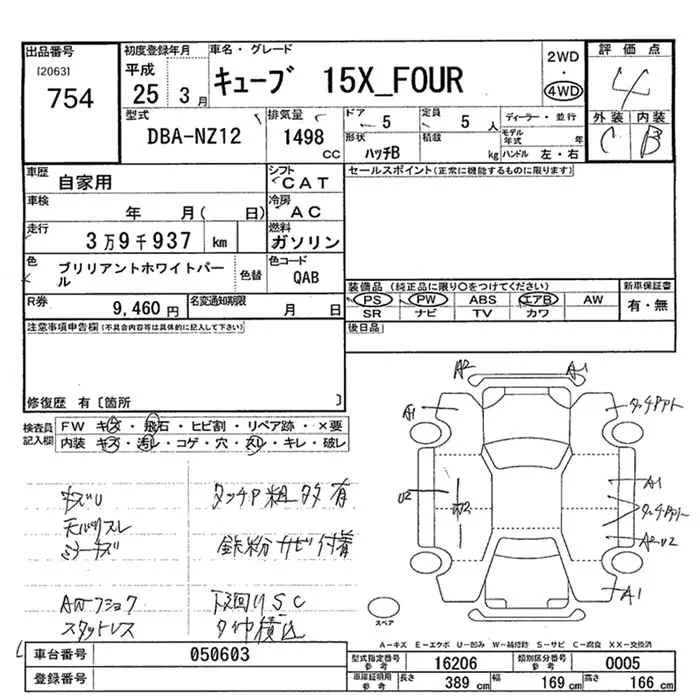 出品番号
[2063]
754
初度登録年月
平成
25 3月
車名・グレード
キューブ 15X_FOUR
2WD
・
4WD
評価点
4
外装 内装
C B
型式
DBA-NZ12
排気量
1498
CC
ドア
5
定員
5 人
形状
ハッチB
積載
kg
ディーラー・並行
モデル年式
年
ハンドル 左・右
車歴
自家用
シフト
CAT
車検
年 月( 日)
冷房
AC
走行
3万9千937 km
燃料
ガソリン
色
ブリリアントホワイトパール
色替
色コード
QAB
R券
9,460 円
名変通知期限
月 日
セールスポイント(正常に機能するものに限ります)
装備品(純正品に限り○をつけてください)
PS PW ABS エアB AW
SR ナビ TV カワ
新車保証書
有・無
後日品
注意事項申告欄(不具合内容等は具体的に記入して下さい)
修復歴 有〔箇所 〕
検査員記入欄
FW キズ・飛石・ヒビ割・リペア跡・×要
内装 キズ・汚レ・コゲ・穴・スレ・キレ・破レ
タッチP粗 タタ 有
ミラーキズ
鉄粉サビ付着
下廻りS.C
スタットレス
タイヤ積込
A2 A1
A1
タッチアト
U2
A1
タッチアト
A1
スペア
A-キズ E-エクボ U-凹み W-補修跡 S-サビ C-腐食 XX-交換済
車台番号
050603
登録番号
型式指定番号
参考
16206
類別区分番号
参考
0005
車庫証明用
参考
長さ
389 cm
幅
169 cm
高さ
166 cm